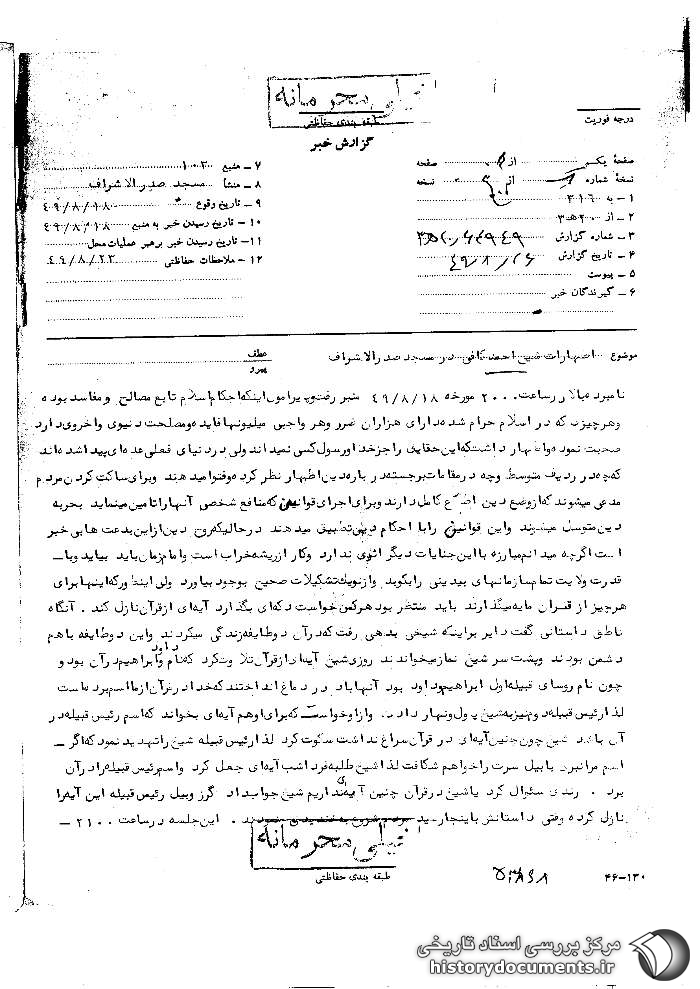 خیلی محرمانه
طبقه بندی حفاظتی
درجه فوریت
گزارش خبر
صفحهٔ یکم از صفحه
نسخهٔ شماره از نسخه
۱ - به ۳۱۶
۲ - از ۳ه۲۰
۳ - شماره گزارش
۴ - تاریخ گزارش
۵ - پیوست
۶ - گیرندگان خبر
۷ - منبع ۱۰۰۲
۸ - منشأ مسجد صدرالاشراف
۹ - تاریخ وقوع ۴۹/۸/۱۸
۱۰ - تاریخ رسیدن خبر به منبع ۴۹/۸/۱۸
۱۱ - تاریخ رسیدن خبر برهبر عملیات محل
۱۲ - ملاحظات حفاظتی ۴۹/۸/۲۳
موضوع اظهارات شیخ احمد کافی در مسجد صدرالاشراف
عطف
پیرو
نامبرده بالا در ساعت ۲۰۰۰ مورخه ۴۹/۸/۱۸ منبر رفته و پیرامون اینکه احکام اسلام تابع مصالح و مفاسد بوده
و هر چیزی که در اسلام حرام شده دارای هزاران ضرر و هر واجبی میلیونها فایده و مصلحت دنیوی و اخروی دارد
صحبت نموده و اظهار داشت که این حقایق را جز خدا و رسول کسی نمیداند ولی در دنیای فعلی عده ای پیدا شده اند
که چه در ردیف متوسط و چه در مقامات برجسته درباره دین اظهار نظر کرده و فتوا میدهند و برای ساکت کردن مردم
مدعی میشوند که از وضع دین اطلاع کامل دارند و برای اجرای قوانین که منافع شخصی آنها را تامین مینماید بحربه
دین متوسل میشوند و این قوانین را با احکام دین تطبیق میدهند در حالیکه روح دین از این بدعت ها بی خبر
است اگرچه میدانم مبارزه با این جنایات دیگر اثری ندارد و کار از ریشه خراب است و امام زمان باید بیاید و با
قدرت ولایت تمام سازمانهای بیدینی را بکوبد و از نو یک تشکیلات صحیح بوجود بیاورد ولی اینطور که اینها برای
هر چیز از قرآن مایه میگذارند باید منتظر بود هر کس خواست دکه ای بگذارد آیه ای از قرآن نازل کند . آنگاه
ناطق داستانی گفت دایر بر اینکه شیخی بدهی رفت که در آن دو طایفه زندگی میکردند و این دو طایفه با هم
دشمن بودند و پشت سر شیخ نماز میخواندند روزی شیخ آیه ای از قرآن تلاوت کرد که نام داود و ابراهیم در آن بود و
چون نام روسای قبیله اول ابراهیم و داود بود آنها باد در دماغ انداختند که خدا در قرآن از ما اسم برده است
لذا رئیس قبیله دوم نیز به شیخ پول و نهار داد و از او خواست که برای او هم آیه ای بخواند که اسم رئیس قبیله در
آن باشد شیخ چون چنین آیه ای در قرآن سراغ نداشت سکوت کرد لذا رئیس قبیله شیخ را تهدید نمود که اگر -
اسم مرا نبری با بیل سرت را خواهم شکافت لذا شیخ طلبه فردا شب آیه ای جعل کرد و اسم رئیس قبیله را در آن
برد . رندی سئوال کرد یا شیخ در قرآن چنین آیه ای نداریم شیخ جواب داد گرز و بیل رئیس قبیله این آیه را
نازل کرده وقتی داستانش باینجا رسید این جلسه در ساعت ۲۱۰۰ -
خیلی محرمانه
طبقه بندی حفاظتی
۴۶-۱۳۰
مرکز بررسی اسناد تاریخی
historydocuments.ir